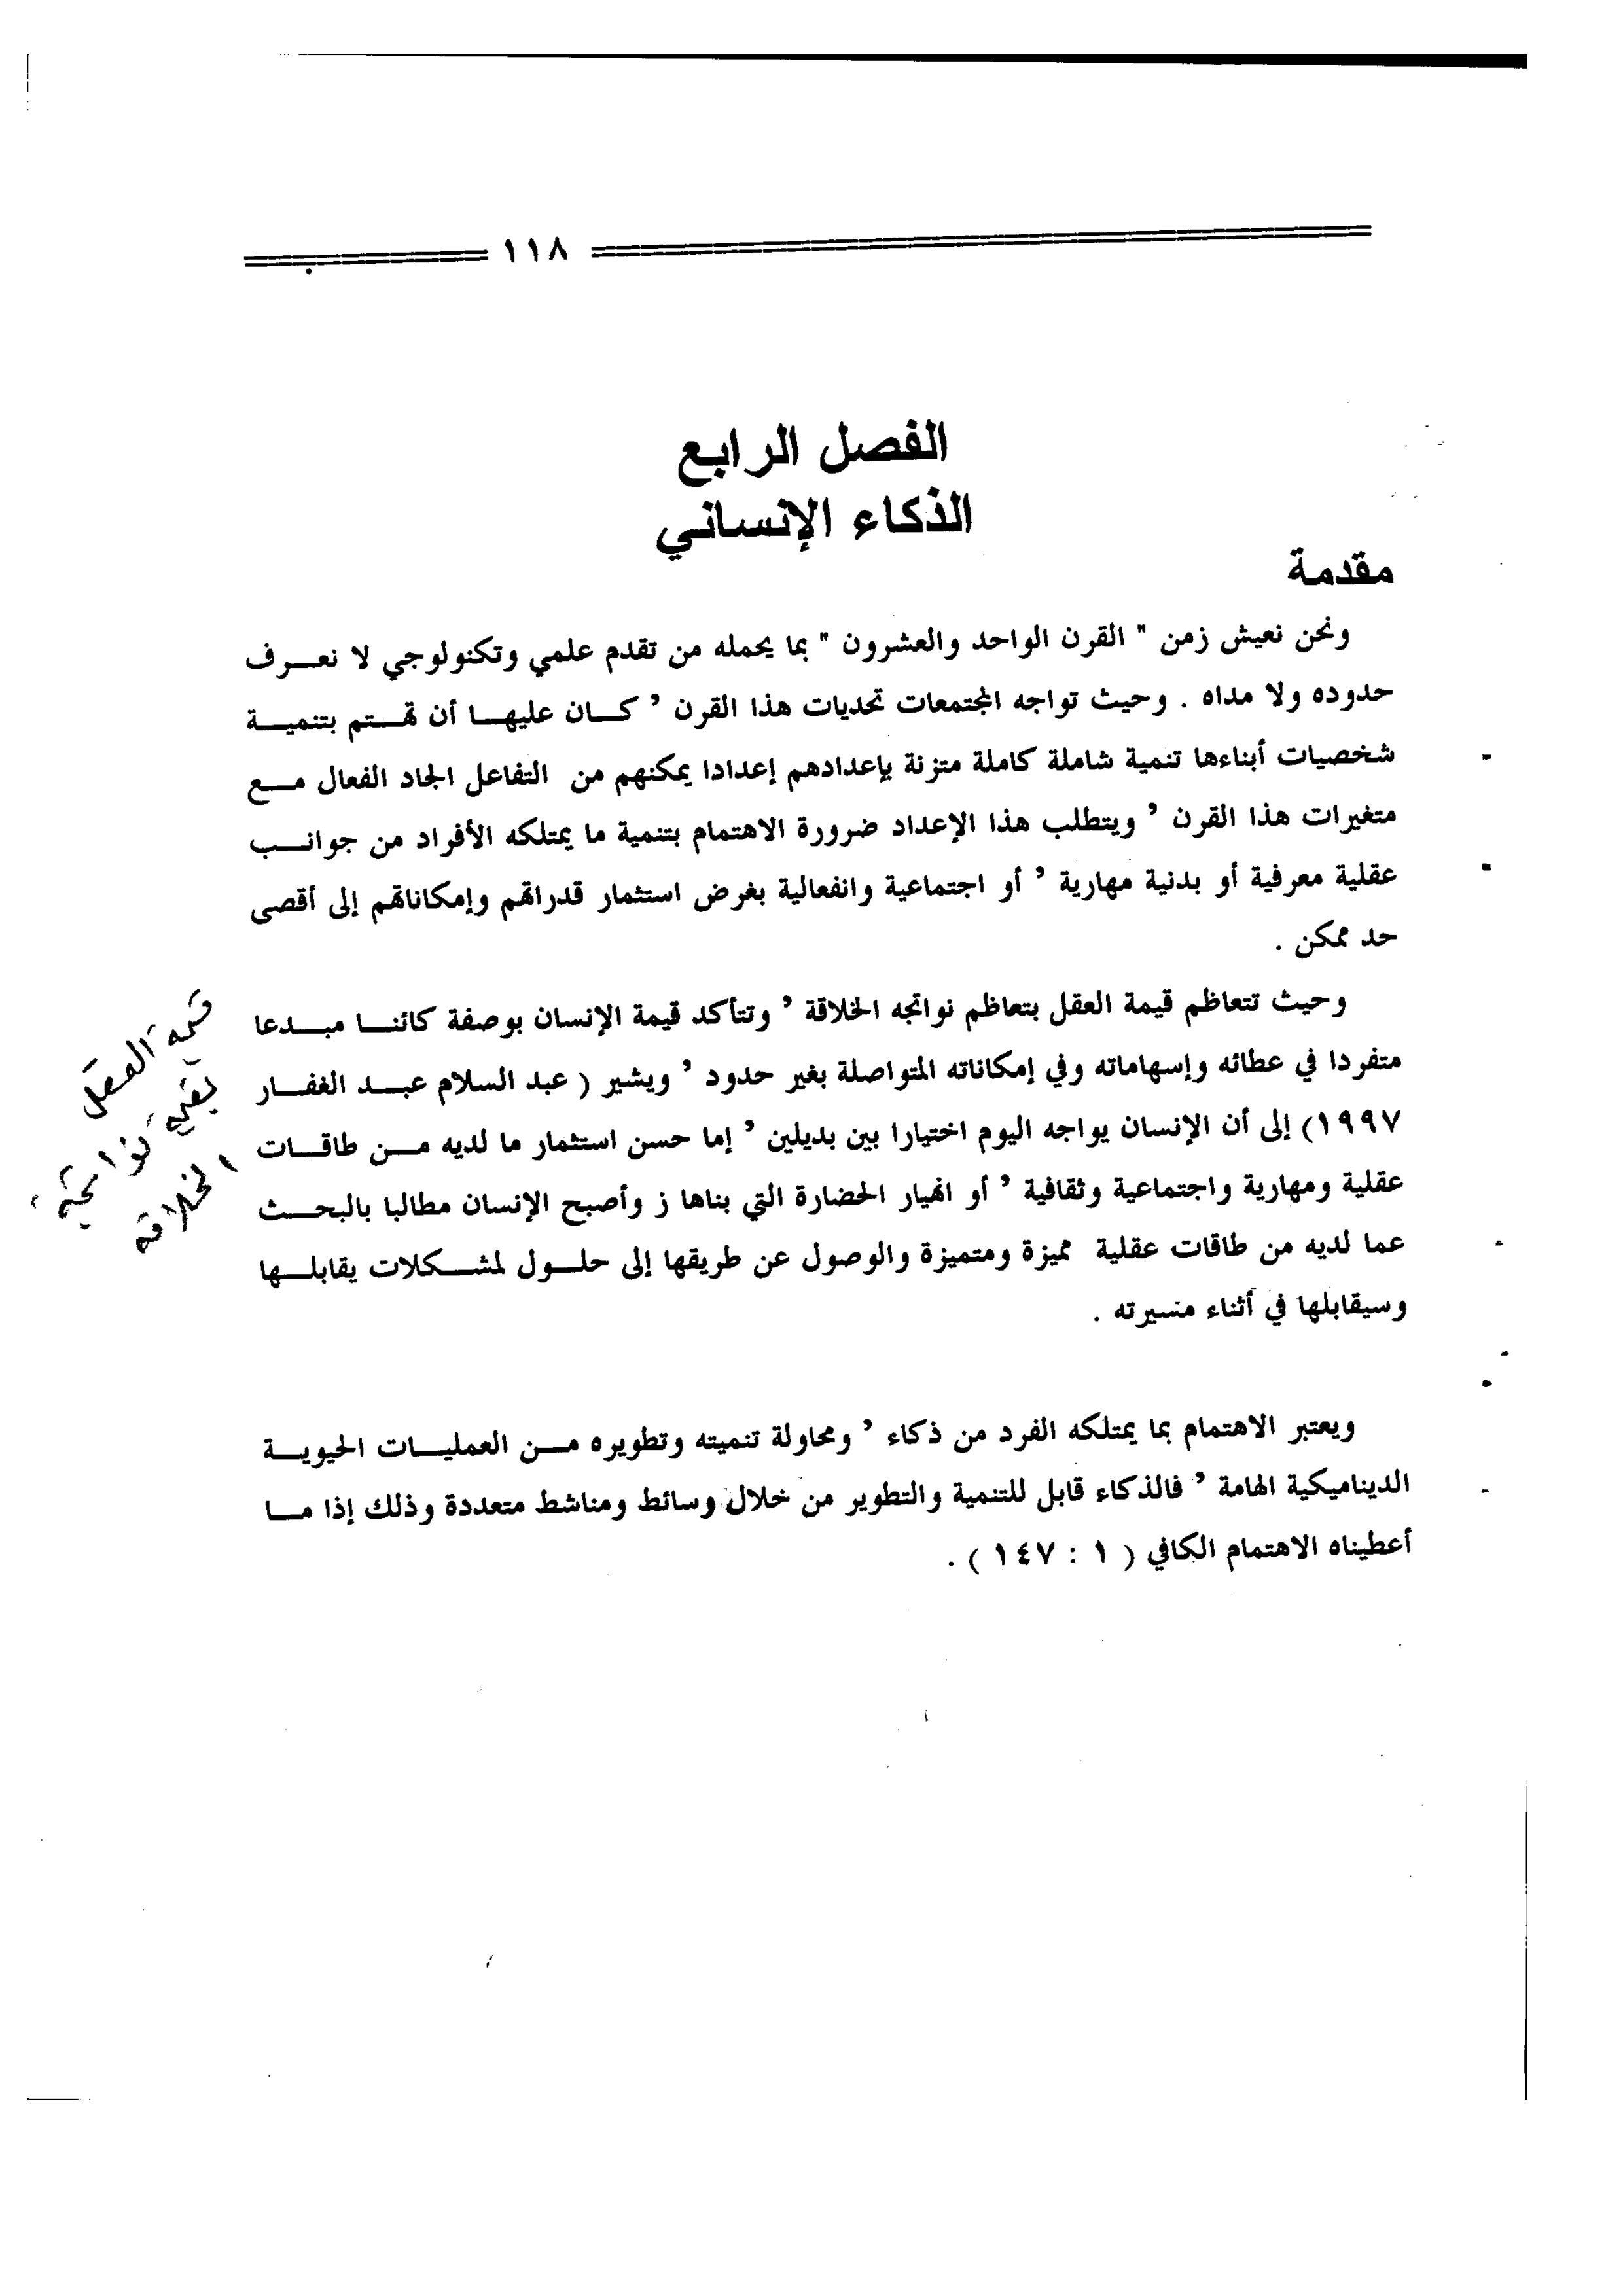 ١١٨
الفصل الرابع
الذكاء الإنساني
مقدمة
ونحن نعيش زمن " القرن الواحد والعشرون " بما يحمله من تقدم علمي وتكنولوجي لا نعرف
حدوده ولا مداه . وحيث تواجه المجتمعات تحديات هذا القرن ’ كان عليها أن تهتم بتنمية
شخصيات أبناءها تنمية شاملة كاملة متزنة بإعدادهم إعدادا يمكنهم من التفاعل الجاد الفعال مع
متغيرات هذا القرن ’ ويتطلب هذا الإعداد ضرورة الاهتمام بتنمية ما يمتلكه الأفراد من جوانب
عقلية معرفية أو بدنية مهارية ’ أو اجتماعية وانفعالية بغرض استثمار قدراتهم وإمكاناتهم إلى أقصى
حد ممكن .
وحيث تتعاظم قيمة العقل بتعاظم نواتجه الخلاقة ’ وتتأكد قيمة الإنسان بوصفة كائنا مبدعا
متفردا في عطائه وإسهاماته وفي إمكاناته المتواصلة بغير حدود ’ ويشير ( عبد السلام عبد الغفار
١٩٩٧) إلى أن الإنسان يواجه اليوم اختيارا بين بديلين ’ إما حسن استثمار ما لديه من طاقات
عقلية ومهارية واجتماعية وثقافية ’ أو انهيار الحضارة التي بناها ز وأصبح الإنسان مطالبا بالبحث
عما لديه من طاقات عقلية مميزة ومتميزة والوصول عن طريقها إلى حلول لمشكلات يقابلها
وسيقابلها في أثناء مسيرته .
ويعتبر الاهتمام بما يمتلكه الفرد من ذكاء ’ ومحاولة تنميته وتطويره من العمليات الحيوية
الديناميكية الهامة ’ فالذكاء قابل للتنمية والتطوير من خلال وسائط ومناشط متعددة وذلك إذا ما
أعطيناه الاهتمام الكافي ( ١ : ١٤٧ ) .
قيمة العقل
بقيمة نواتجه
الخلاقة